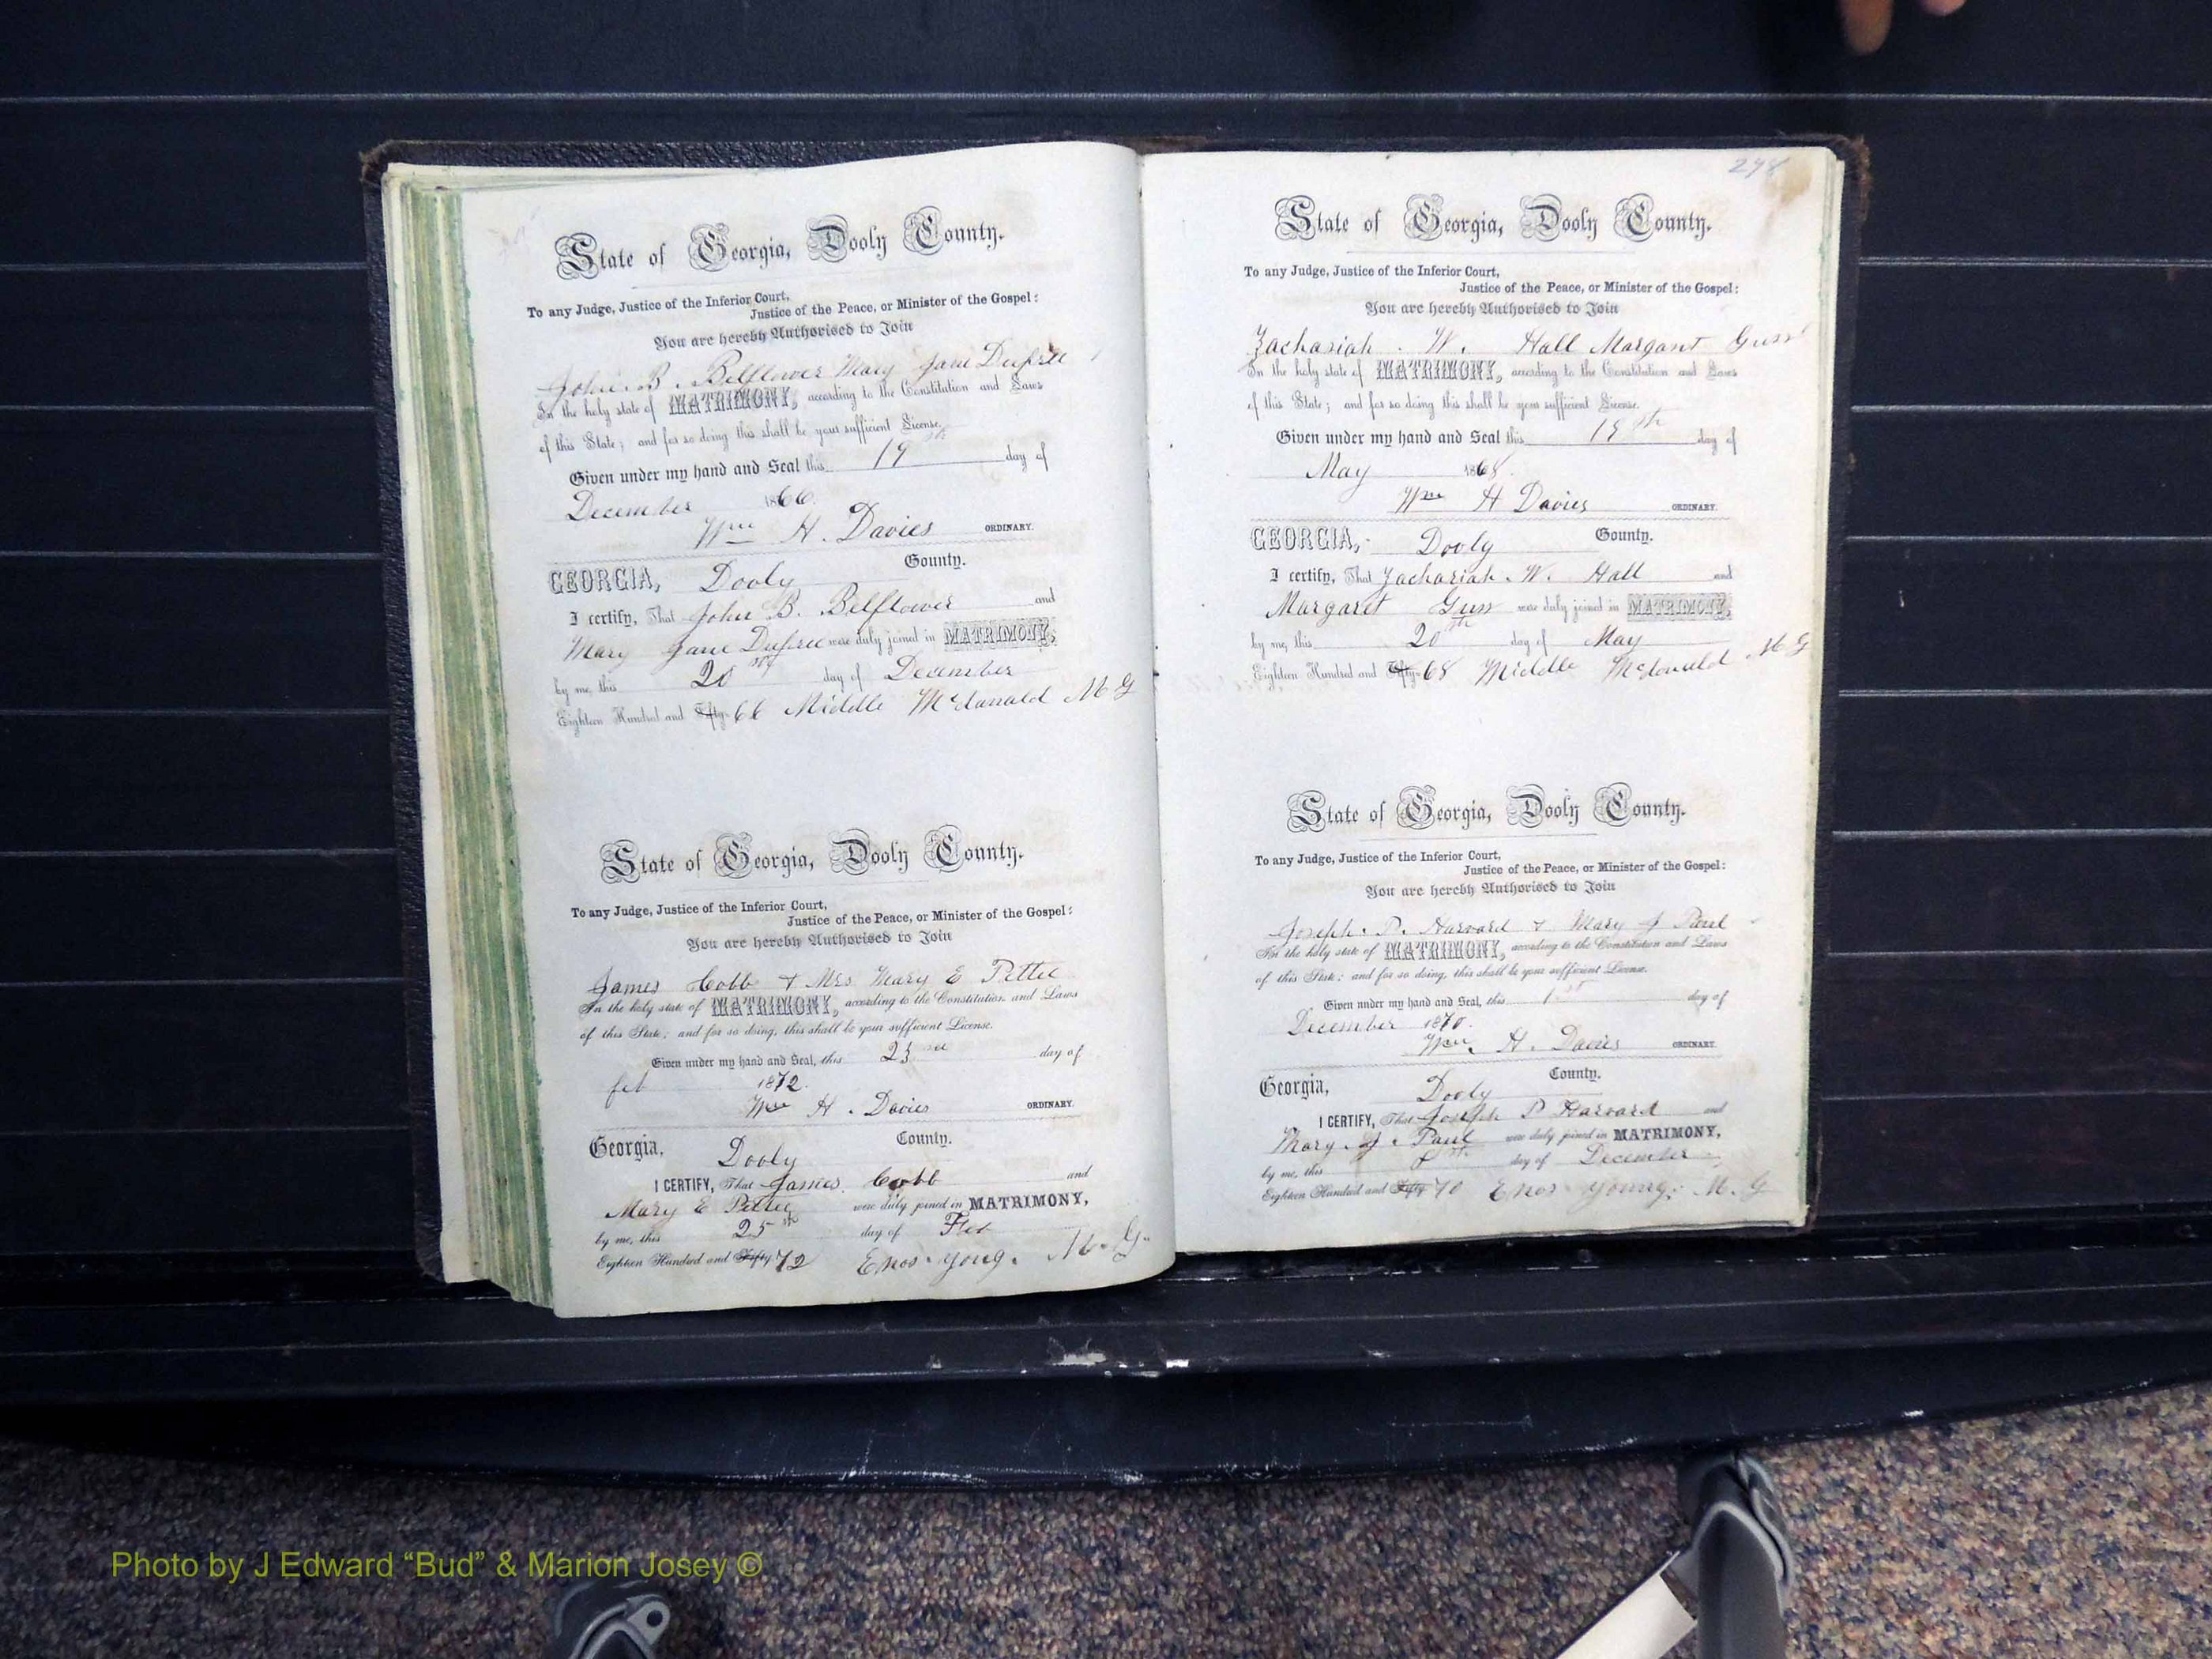 State of Georgia, Dooly County.
To any Judge, Justice of the Inferior Court,
Justice of the Peace, or Minister of the Gospel:
You are hereby Authorised to Join
John B. Belflower Mary Jane Dupree
In the holy state of MATRIMONY, according to the Constitution and Laws
of this State; and for so doing this shall be your sufficient License.
Given under my hand and Seal this 19th day of
December 1866.
Wm H. Davies ORDINARY.
GEORGIA, Dooly County.
I certify, That John B. Belflower and
Mary Jane Dupree were duly joined in MATRIMONY,
by me, this 20 day of December
Eighteen Hundred and Fifty 66 Middle McDonald M G
State of Georgia, Dooly County.
To any Judge, Justice of the Inferior Court,
Justice of the Peace, or Minister of the Gospel:
You are hereby Authorised to Join
James Cobb & Mrs Mary E Pettee
In the holy state of MATRIMONY, according to the Constitution and Laws
of this State; and for so doing, this shall be your sufficient License.
Given under my hand and Seal, this 23 day of
feb 1872.
Wm H. Davies ORDINARY.
Georgia, Dooly County.
I CERTIFY, That James Cobb and
Mary E Pettee were duly joined in MATRIMONY,
by me, this 25th day of Feb
Eighteen Hundred and Fifty 72 Enos Yong. M. G.
298
State of Georgia, Dooly County.
To any Judge, Justice of the Inferior Court,
Justice of the Peace, or Minister of the Gospel:
You are hereby Authorised to Join
Zachariah W. Hall Margant Guss
In the holy state of MATRIMONY, according to the Constitution and Laws
of this State; and for so doing this shall be your sufficient License.
Given under my hand and Seal this th day of
May 1868.
Wm H Davies ORDINARY.
GEORGIA, Dooly County.
I certify, That Zachariah W. Hall and
Margaret Guss were duly joined in MATRIMONY,
by me, this 20th day of May
Eighteen Hundred and Fifty 68 Middle McDonald M G
State of Georgia, Dooly County.
To any Judge, Justice of the Inferior Court,
Justice of the Peace, or Minister of the Gospel:
You are hereby Authorised to Join
Joseph P. Harvard & Mary J Paul
In the holy state of MATRIMONY, according to the Constitution and Laws
of this State; and for so doing, this shall be your sufficient License.
Given under my hand and Seal, this 1st day of
December 1870.
Wm. H. Davies ORDINARY.
Georgia, Dooly County.
I CERTIFY, That Joseph P Harvard and
Mary J. Paul were duly joined in MATRIMONY,
by me, this day of December
Eighteen Hundred and Fifty 70 Enos Young. M. G
Photo by J Edward “Bud” & Marion Josey ©